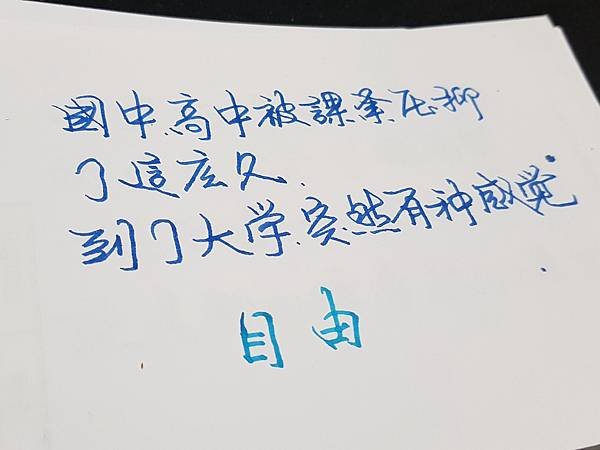 國中高中被課業压抑
了這広久.
到了大学突然有种感覚
自由